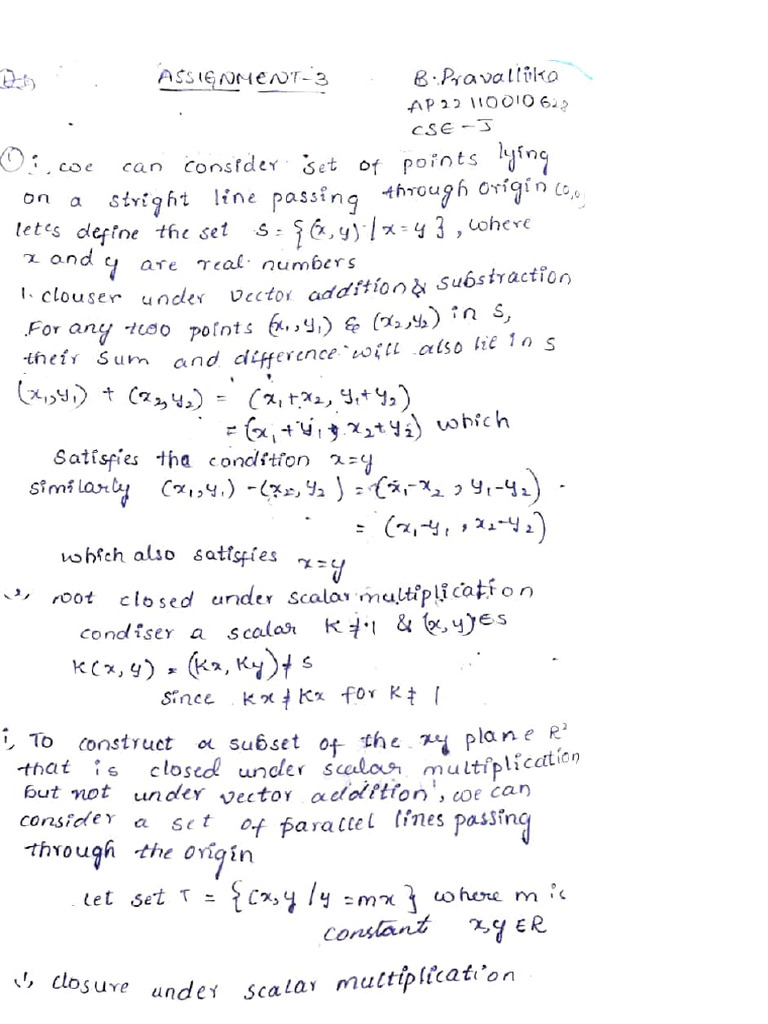 ASSIGNMENT-3 B.Pravallika
AP22110010628
CSE-J
① i, we can consider set of points lying
on a stright line passing through origin (0,0)
letes define the set S = {(x,y) | x=y}, where
x and y are real numbers
1. clouser under vector addition & substraction
For any two points (x₁,y₁) & (x₂,y₂) in S,
their sum and difference will also lie in s
(x₁,y₁) + (x₂,y₂) = (x₁+x₂, y₁+y₂)
= (x₁+y₁, x₂+y₂) which
satisfies the condition x=y
similarly (x₁,y₁) - (x₂,y₂) = (x₁-x₂, y₁-y₂)
= (x₁-y₁, x₂-y₂)
which also satisfies x=y
not closed under scalar multiplication
condiser a scalar K≠1 & (x,y)∈s
K(x,y) = (Kx, Ky) ≠ s
since Kx ≠ Kx for K ≠ 1
i, To construct a subset of the xy plane R²
that is closed under scalar multiplication
but not under vector addition, we can
consider a set of parallel lines passing
through the origin
Let set T = {(x,y / y=mx} where m is
constant x,y ∈R
closure under scalar multiplication